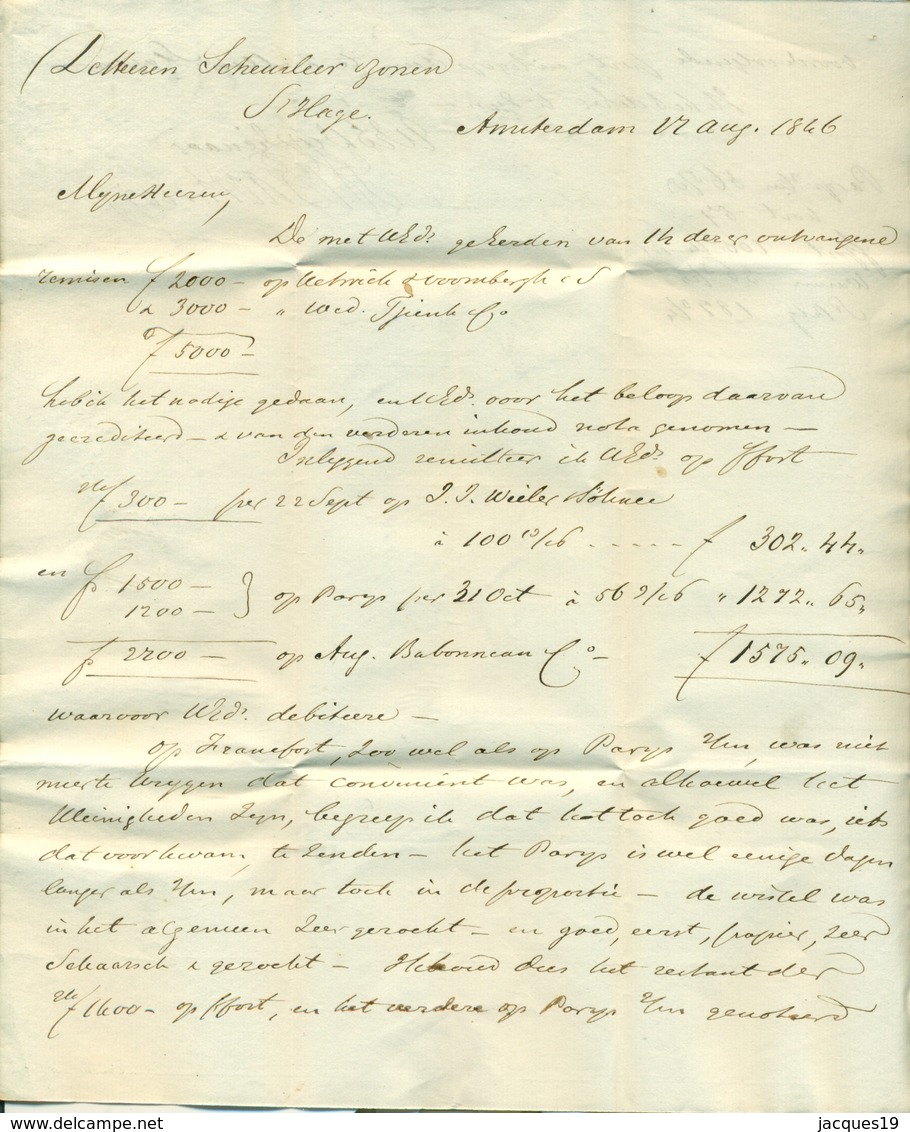 De Heeren Scheurleer Zonen
S'Hage.
Amsterdam 17 aug. 1846
Myne Heeren,
De met UEds. geëerden van 14 dezer ontvangene
remisen f 2000 – op Ketwich & voombergh cS
& 3000 – " Wed. Tjeenk Co
f 5000 –
heb ik het nodige gedaan, en UEds. voor het beloop daarvan
gecrediteerd – & van den verderen inhoud nota genomen –
Inleggend remitteer ik UEds. op ffort
f 300 – per 22 Sept op J. J. Weiler Söhne
à 100 – f 302.. 44..
en fs 1500 –
1200 – } op Parys per 31 Oct à 56 " 1272.. 65..
fs 2700 – op Aug. Babonneau Co – f 1575.. 09..
waarvoor UEds. debiteere –
op Francfort, zoo wel als op Parys 2/m, was niet
meer te krygen dat convenient was, en alhoewel het
kleinigheden zyn, begreep ik dat het toch goed was, iets
dat voorkwam, te zenden – het Parys is wel eenige dagen
langer als 2/m, maar toch in de proportie – de wissel was
in het algemeen zeer gezocht – en goed, eerst, papier, zeer
Schaarsch & gezocht – Ik houd dus het restant der
f 1600 – op ffort, en het verdere op Parys 2/m genoteerd
delcampe.net
jacques19